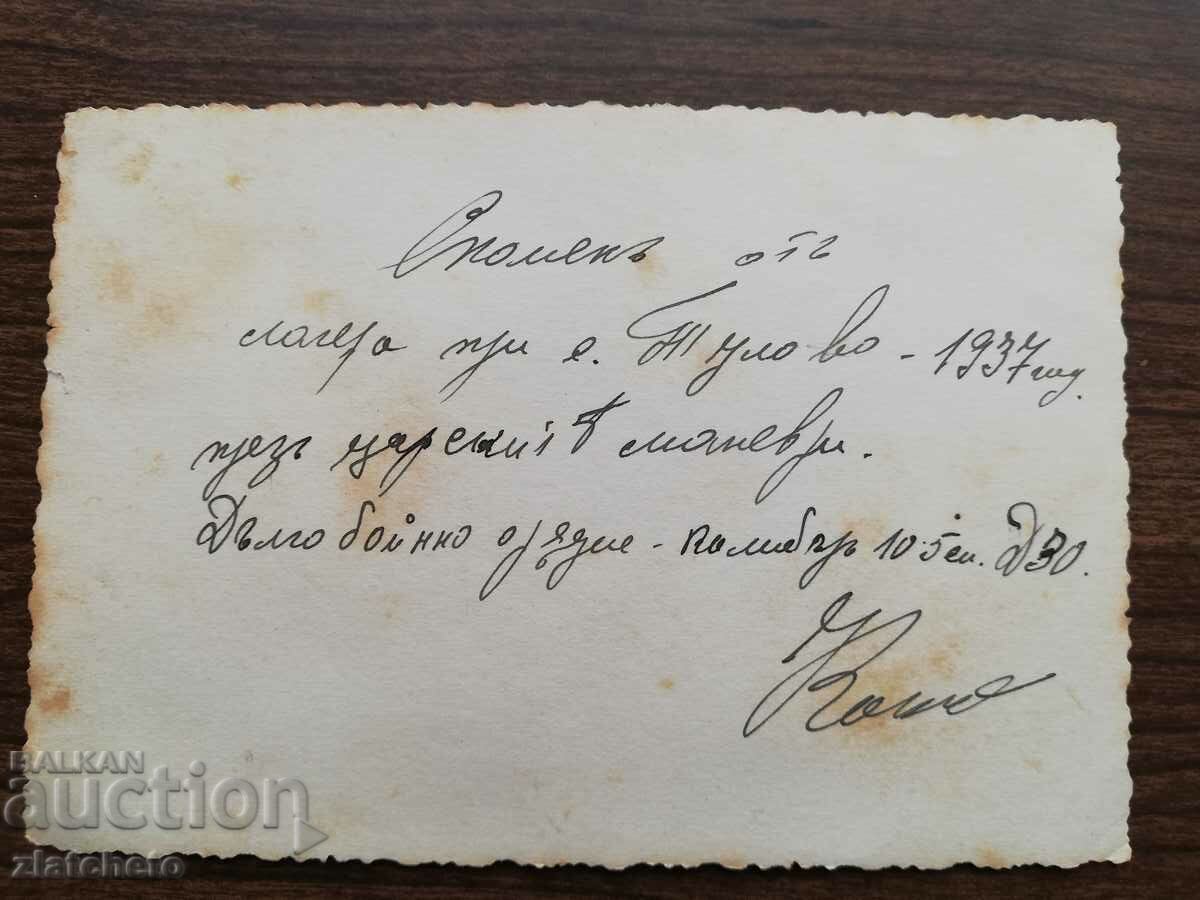 Споменъ отъ
лагера при с. Тулово - 1937 год.
презъ царскитѣ маневри.
Дългобойнно орѫдие - калибъръ 10.5 см. Д30.
BALKAN
auction
zlatchero